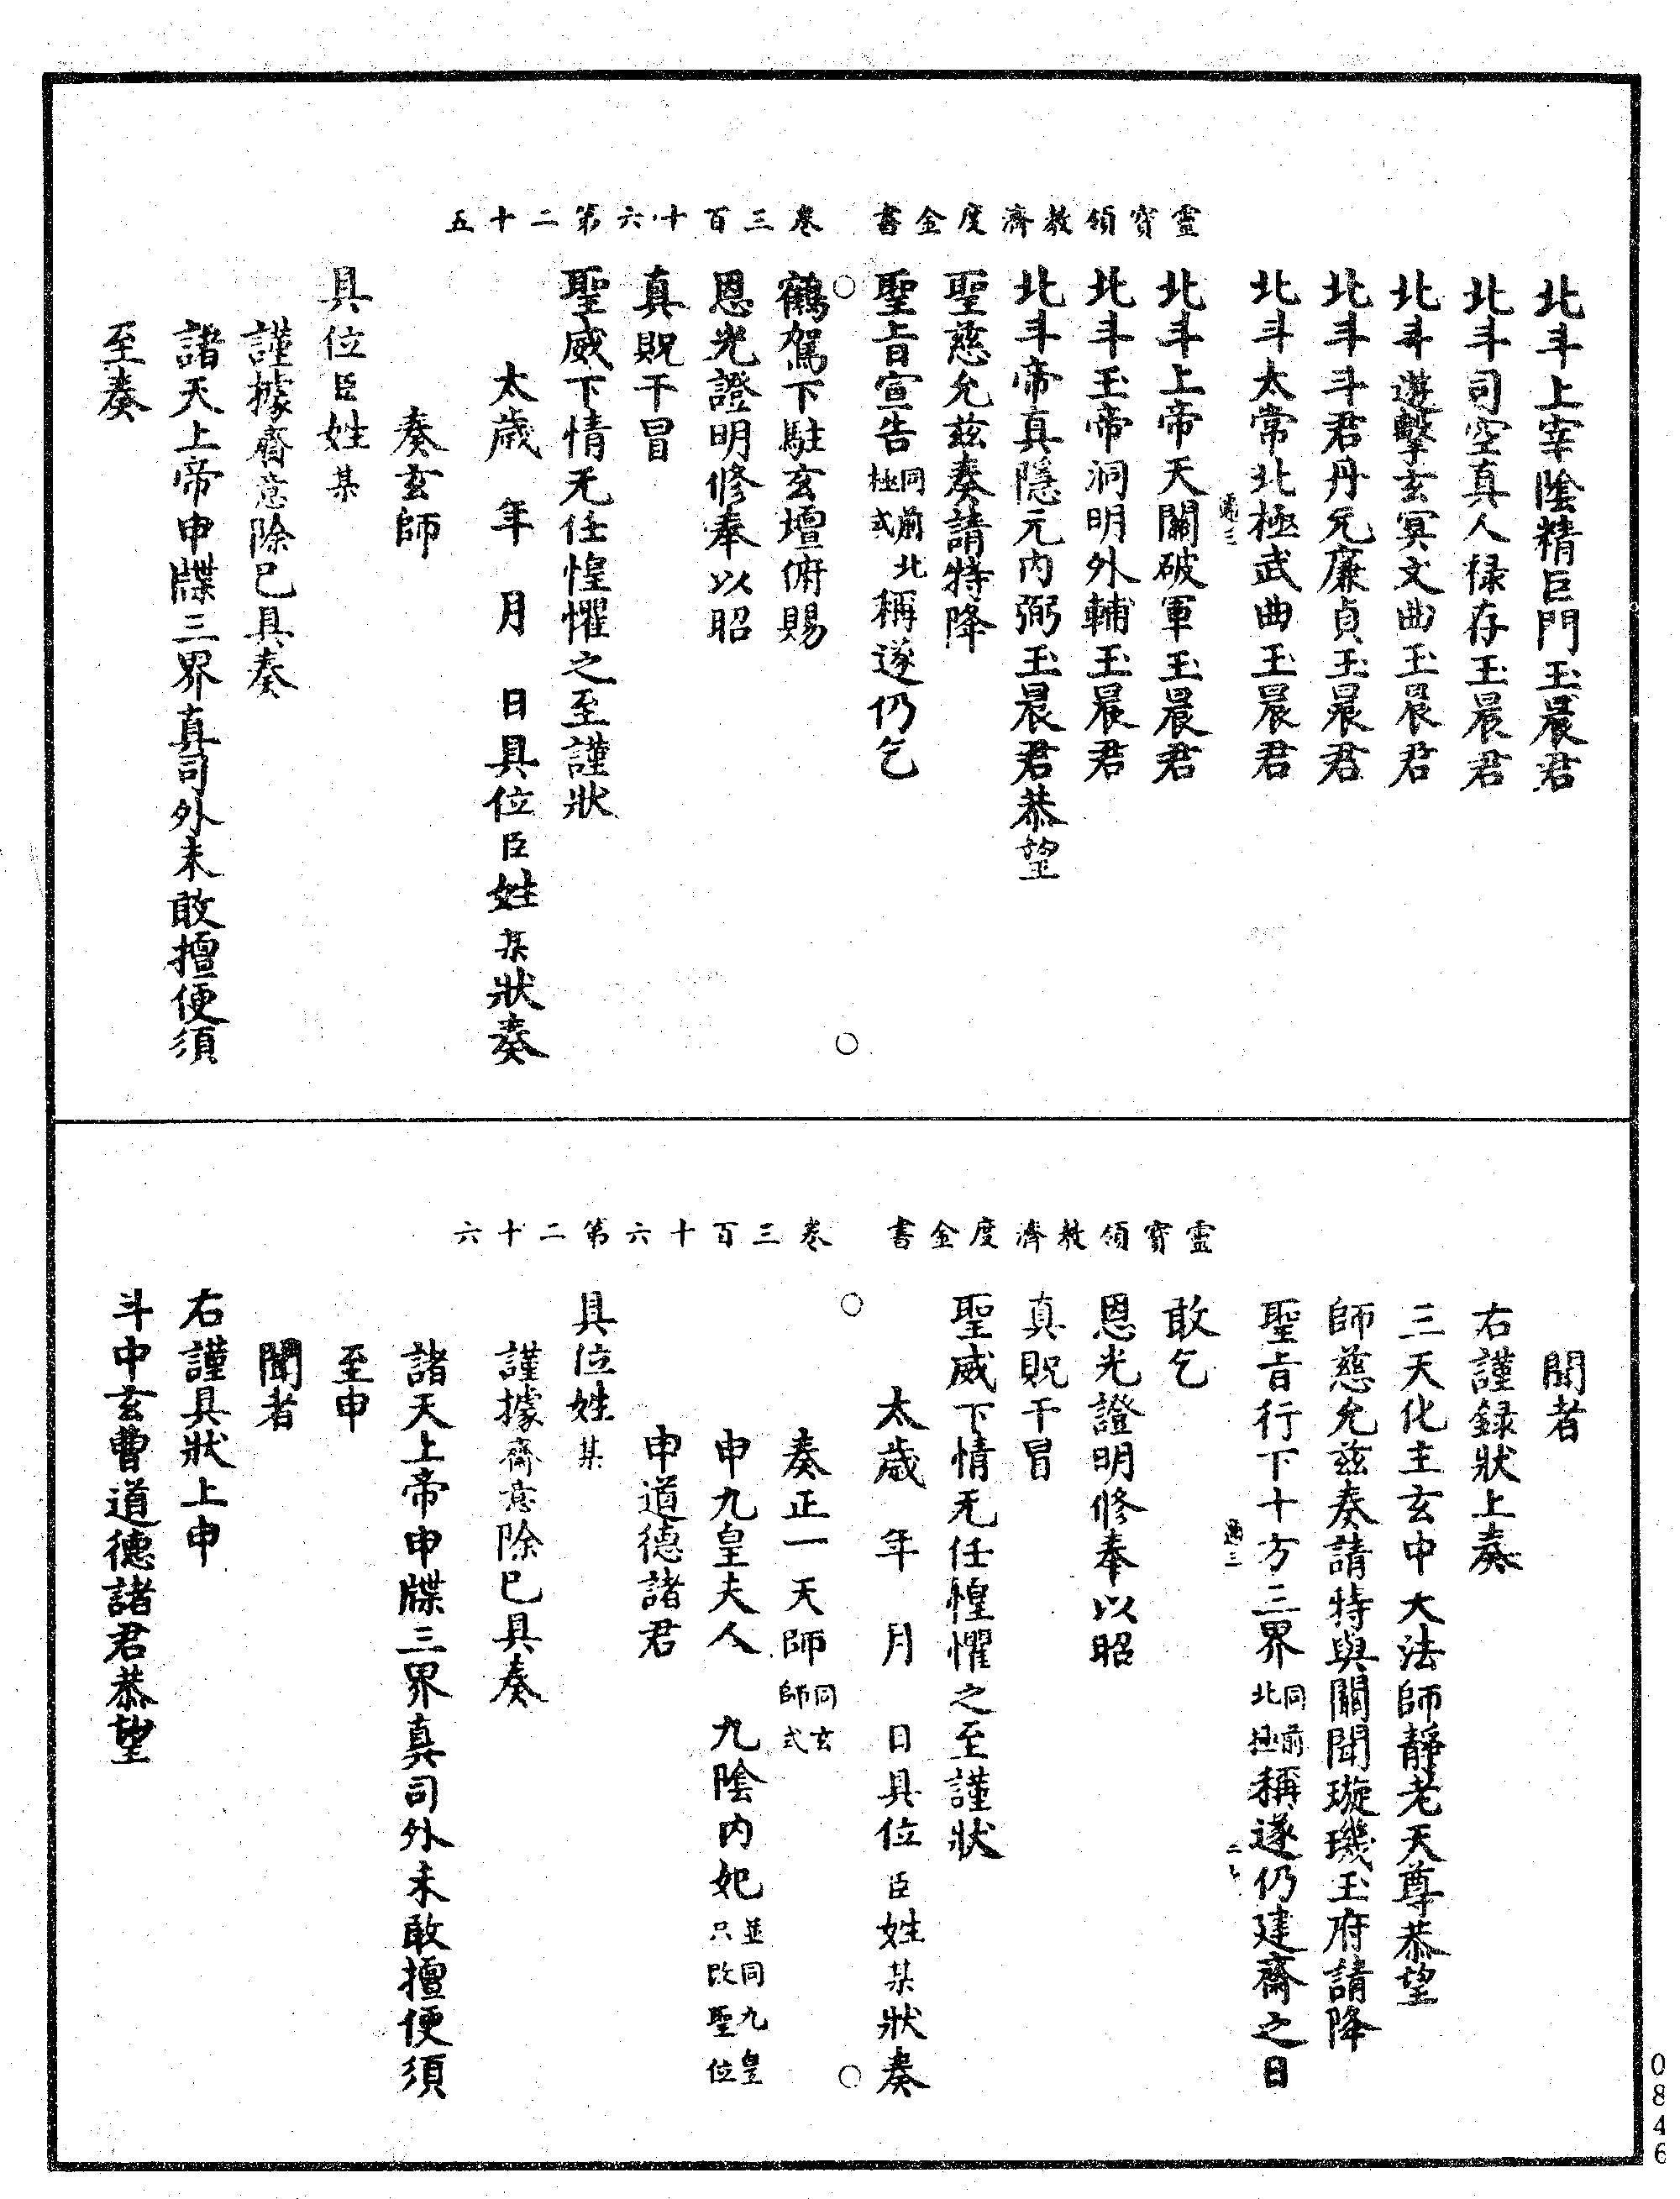 靈寶領教濟度金書　卷三百十六第二十五
北斗上宰陰精巨門玉晨君
北斗司空真人禄存玉晨君
北斗遊擊玄冥文曲玉晨君
北斗斗君丹元廉貞玉晨君
北斗太常北極武曲玉晨君
北斗上帝天關破軍玉晨君
北斗玉帝洞明外輔玉晨君
北斗帝真隱元内弼玉晨君恭望
聖慈允茲奏請特降
聖旨宣告同前北極式稱遂仍乞
鶴駕下駐玄壇俯賜
恩光證明修奉以昭
真貺干冒
聖威下情无任惶懼之至謹狀
太歲　年　月　日具位臣姓某狀奏
奏玄師
具位臣姓某
謹據齋意除已具奏
諸天上帝申牒三界真司外未敢擅便須
至奏
靈寶領教濟度金書　卷三百十六第二十六
聞者
右謹録狀上奏
三天化主玄中大法師靜老天尊恭望
師慈允茲奏請特與關聞璇璣玉府請降
聖旨行下十方三界同前北極稱遂仍建齋之日
敢乞
恩光證明修奉以昭
真貺干冒
聖威下情无任惶懼之至謹狀
太歲　年　月　日具位臣姓某狀奏
奏正一天師同玄師式
申九皇夫人　九陰内妃並同九皇只改聖位
申道德諸君
具位姓某
謹據齋意除已具奏
諸天上帝申牒三界真司外未敢擅便須
至申
聞者
右謹具狀上申
斗中玄曹道德諸君恭望
0846